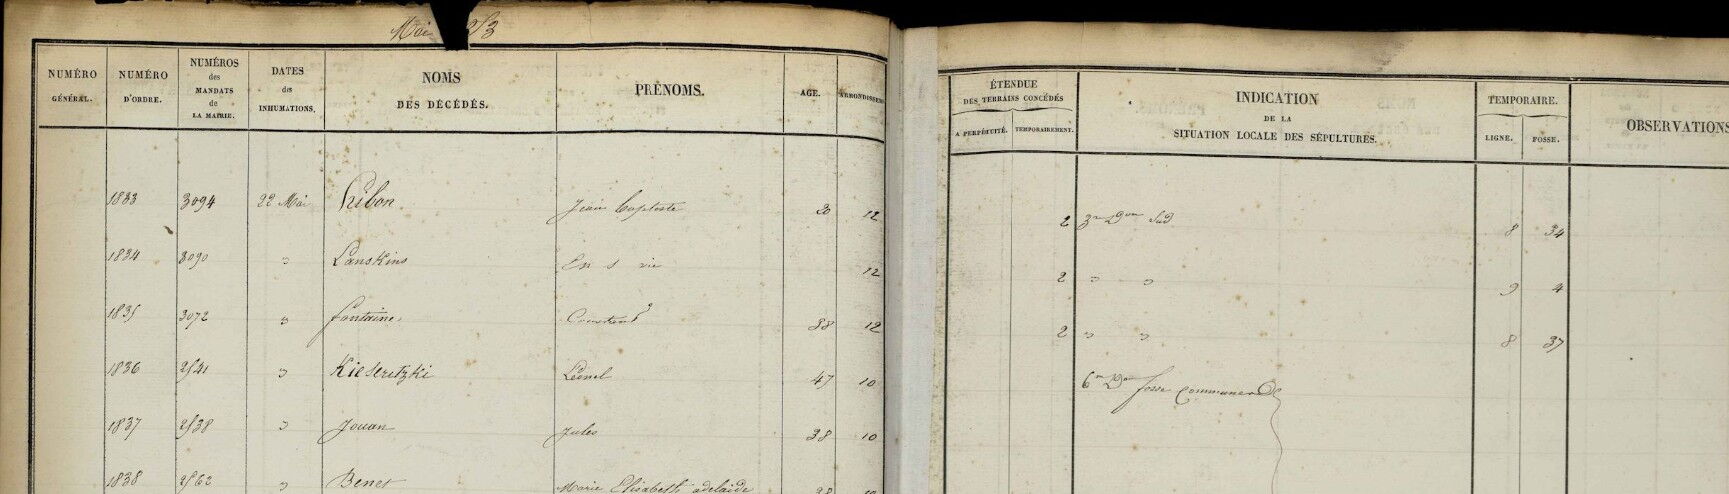 Mai 53
NUMÉRO GÉNÉRAL.
NUMÉRO D'ORDRE.
NUMÉROS des MANDATS de LA MAIRIE.
DATES des INHUMATIONS.
NOMS DES DÉCÉDÉS.
PRÉNOMS.
AGE.
ARRONDISSEM
ÉTENDUE DES TERRAINS CONCÉDÉS
A PERPÉTUITÉ.
TEMPORAIREMENT.
INDICATION DE LA SITUATION LOCALE DES SÉPULTURES.
TEMPORAIRE.
LIGNE.
FOSSE.
OBSERVATIONS
1833 3094 22 Mai Jean Baptiste 20 12 2 3me Don Sud 8 34
1834 3090 " Lanskins En s vie 12 2 " " 9 4
1835 3072 " fontaine. 38 12 2 " " 8 37
1836 2541 " Kieseritzki Léonel 47 10 6me Don fosse commune
1837 2538 " Jouan Jules 38 10
1838 2562 " Benet Marie Elisabeth adelaide 38 10